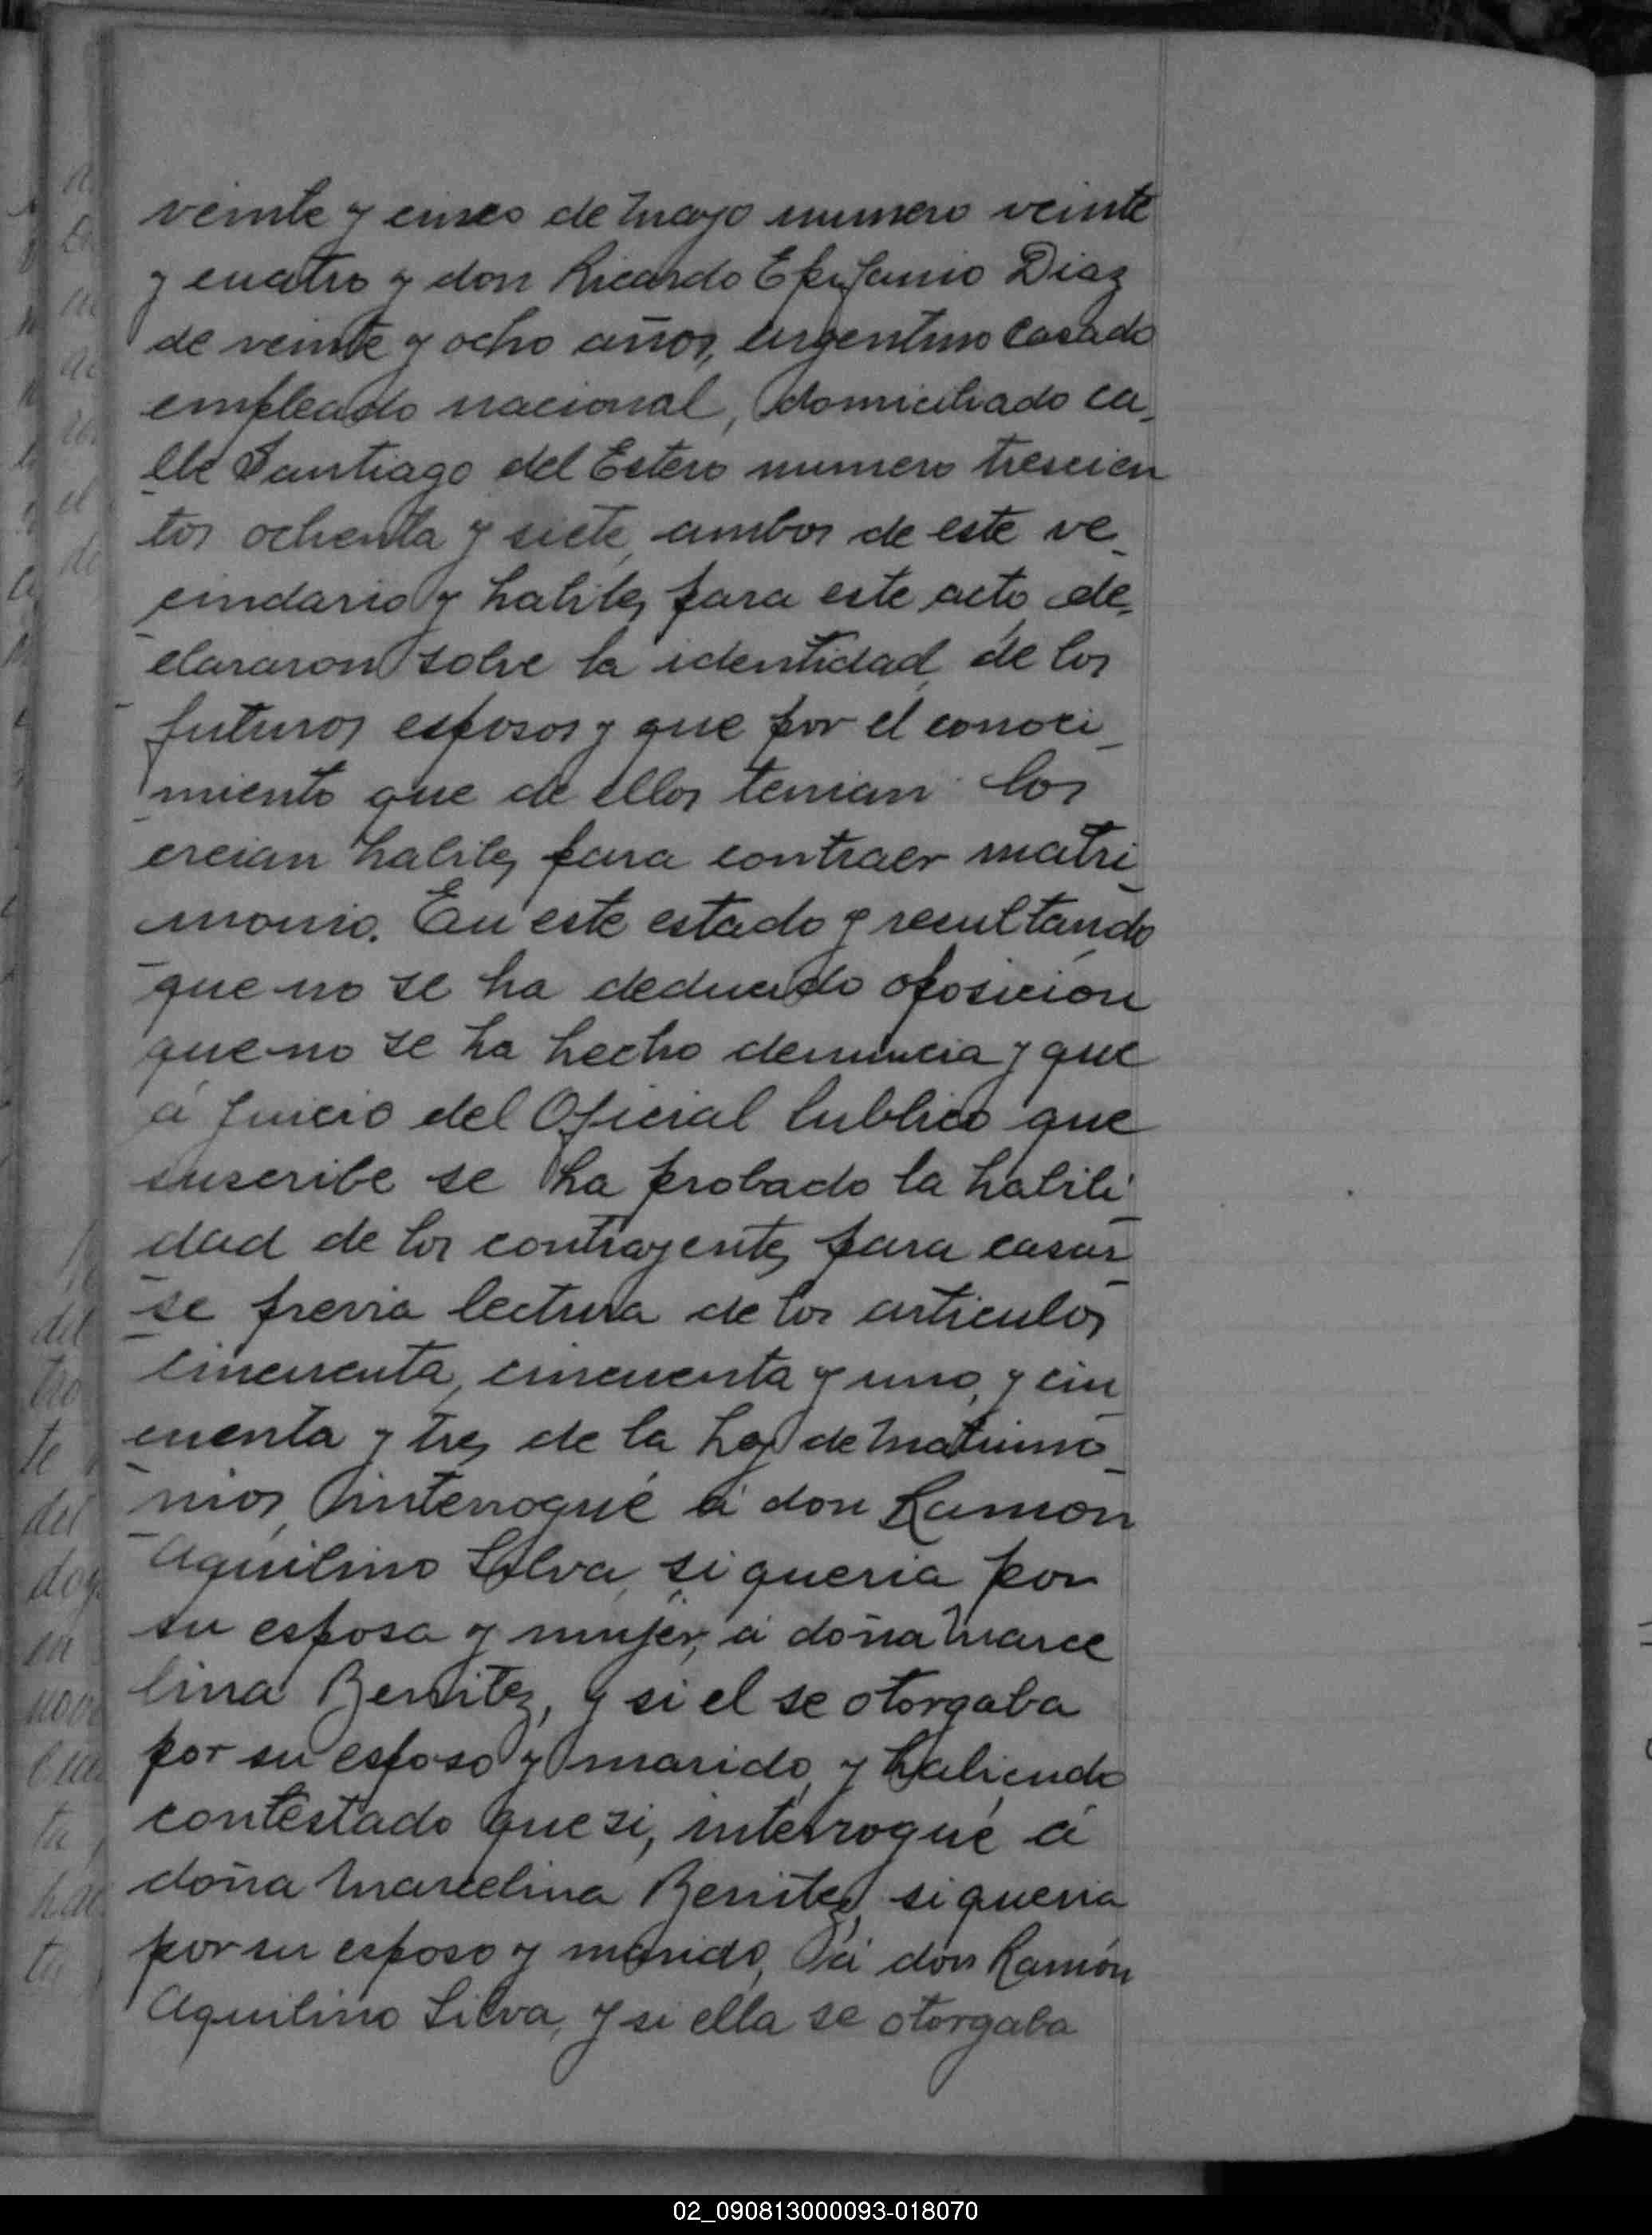 veinte y cinco de Mayo numero veinte
y cuatro y don Ricardo Epifanio Diaz
de veinte y ocho años, argentino casado
empleado nacional, domiciliado ca-
lle Santiago del Estero numero trescien
tos ochenta y siete, ambos de este ve-
cindario y habiles para este acto, de-
clararon sobre la identidad, de los
futuros esposos y que por el conoci-
miento que de ellos tenian los
creian habiles para contraer matri-
monio. En este estado y resultando
que no se ha deducido oposicion
que no se ha hecho denuncia y que
á juicio del Oficial Publico que
suscribe se ha probado la habili-
dad de los contrayentes para casar-
se previa lectura de los articulos
cincuenta, cincuenta y uno, y cin
cuenta y tres de la Ley de Matrimo-
nios, interrogué á don Ramon
Aquilino Silva, si queria por
su esposa y mujer, á doña Marce
lina Benitez, y si el se otorgaba
por su esposo y marido, y habiendo
contestado que si, interrogué á
doña Marcelina Benitez, si queria
por su esposo y marido, á don Ramón
Aquilino Silva, y si ella se otorgaba
02_090813000093-018070